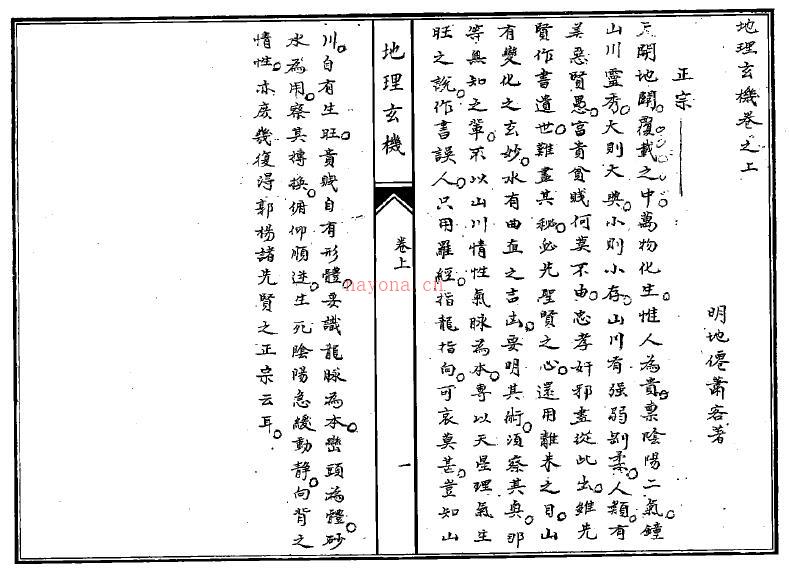 地理玄機卷之上
明地僊蕭客著
正宗
天開地闢覆載之中萬物化生惟人為貴稟陰陽二氣鐘
山川靈秀大則大興小則小存山川有强弱剛柔人類有
美惡賢愚富貴貧賤何莫不由忠孝奸邪盡從此出雖先
賢作書遺世難盡其秘必先聖賢之心還用離朱之目山
有變化之玄妙水有曲直之吉凶要明其術須察其奥那
等無知之輩不以山川情性氣脉為本專以天星理氣生
旺之說作書誤人只用羅經指龍指向可哀莫甚豈知山
地理玄機
卷上
一
川自有生旺貴賤自有形體要識龍脉為本巒頭為體砂
水為用察其轉換俯仰順逆生死陰陽急緩動靜向背之
情性亦庶幾復得郭楊諸先賢之正宗云耳
nayona.cn